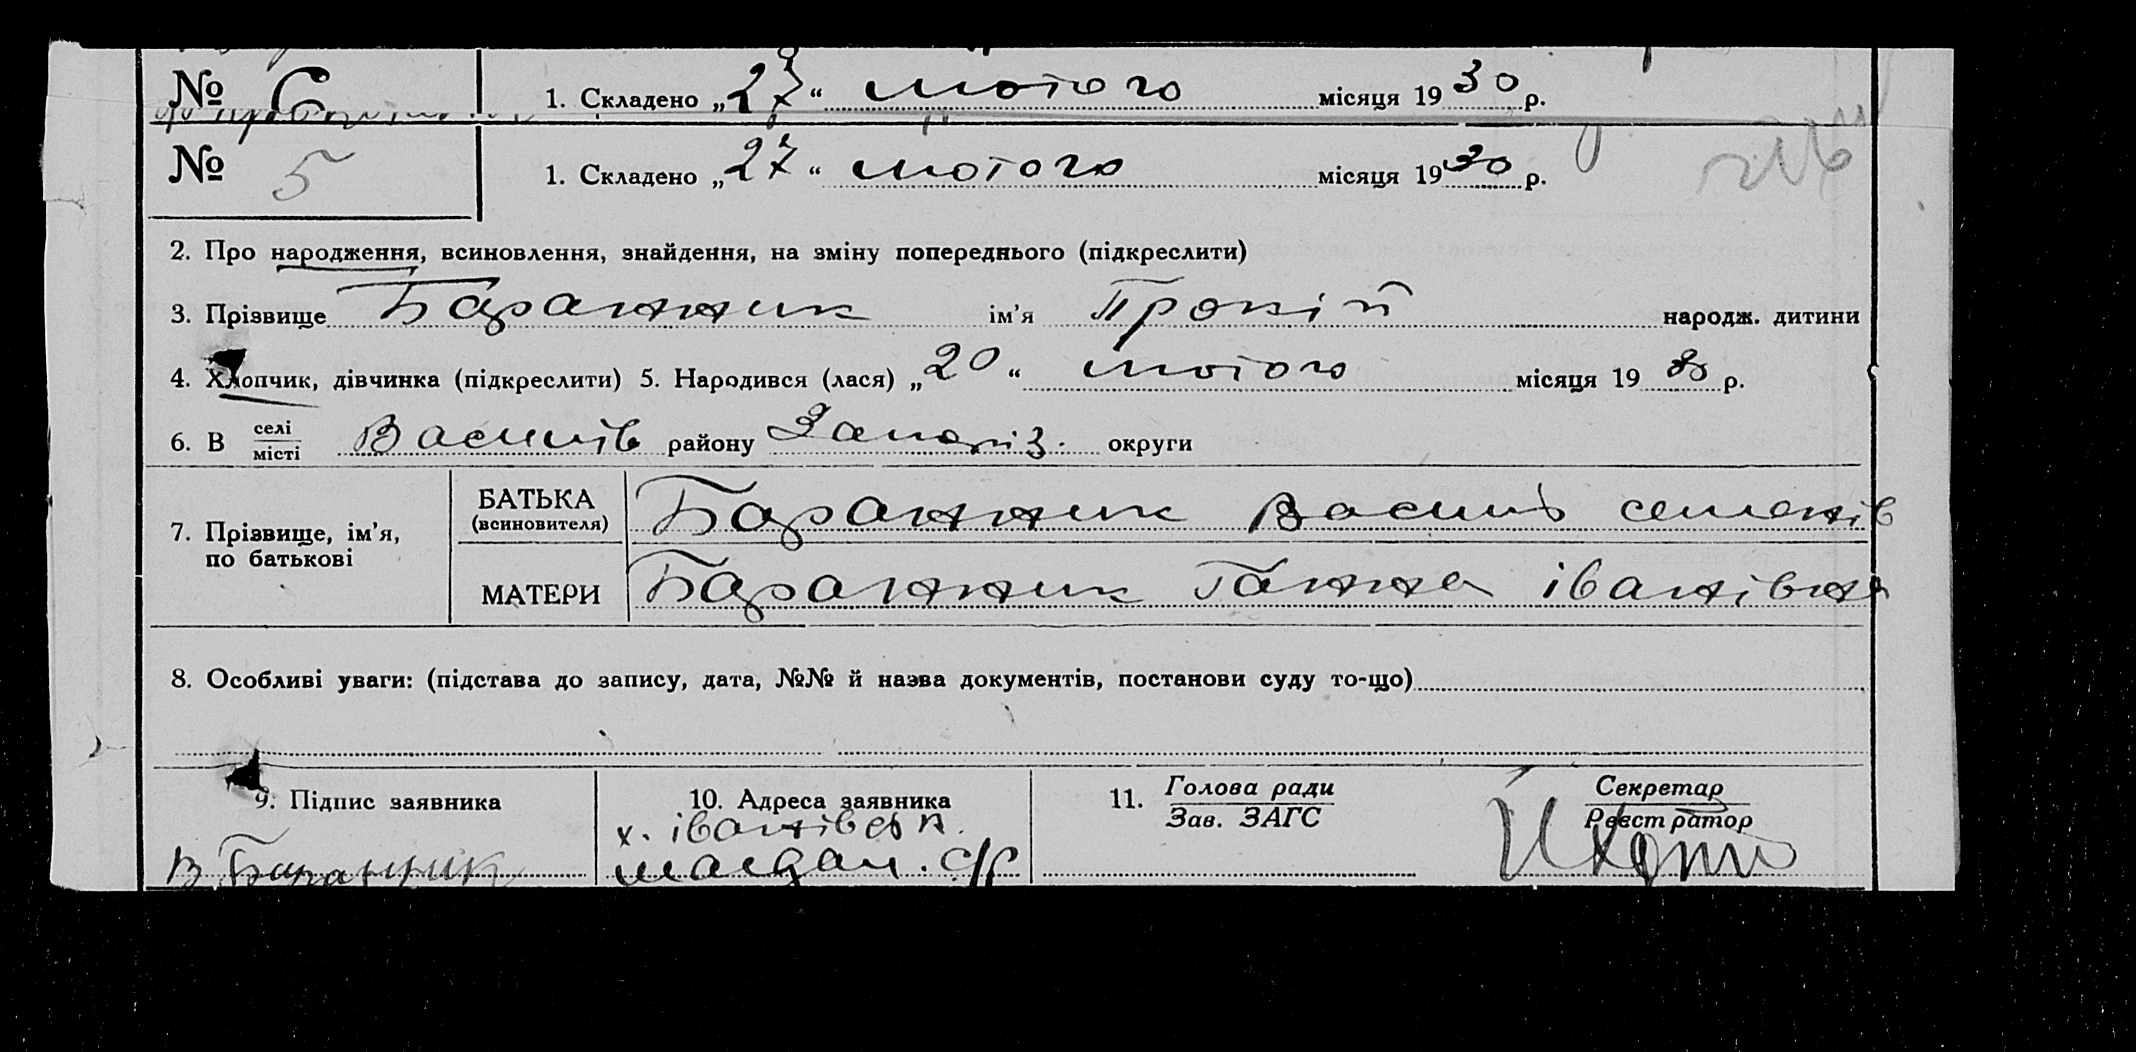 № 6 1. Складено „27“ лютого місяця 1930 р.
№ 5 1. Складено „27“ лютого місяця 1930 р.
2. Про народження, всиновлення, знайдення, на зміну попереднього (підкреслити)
3. Прізвище Баранник ім'я Прокіп народж. дитини
4. Хлопчик, дівчинка (підкреслити) 5. Народився (лася) „20“ лютого місяця 1930 р.
6. В селі/місті Василів району Запоріз. округи
7. Прізвище, ім'я, по батькові
БАТЬКА (всиновителя) Баранник Василь семенів
МАТЕРИ Баранник Ганна іванівна
8. Особливі уваги: (підстава до запису, дата, №№ й назва документів, постанови суду то-що)
9. Підпис заявника 10. Адреса заявника 11. Голова ради / Зав. ЗАГС Секретар / Реєстратор
х. іванівка
В Баранник с/р